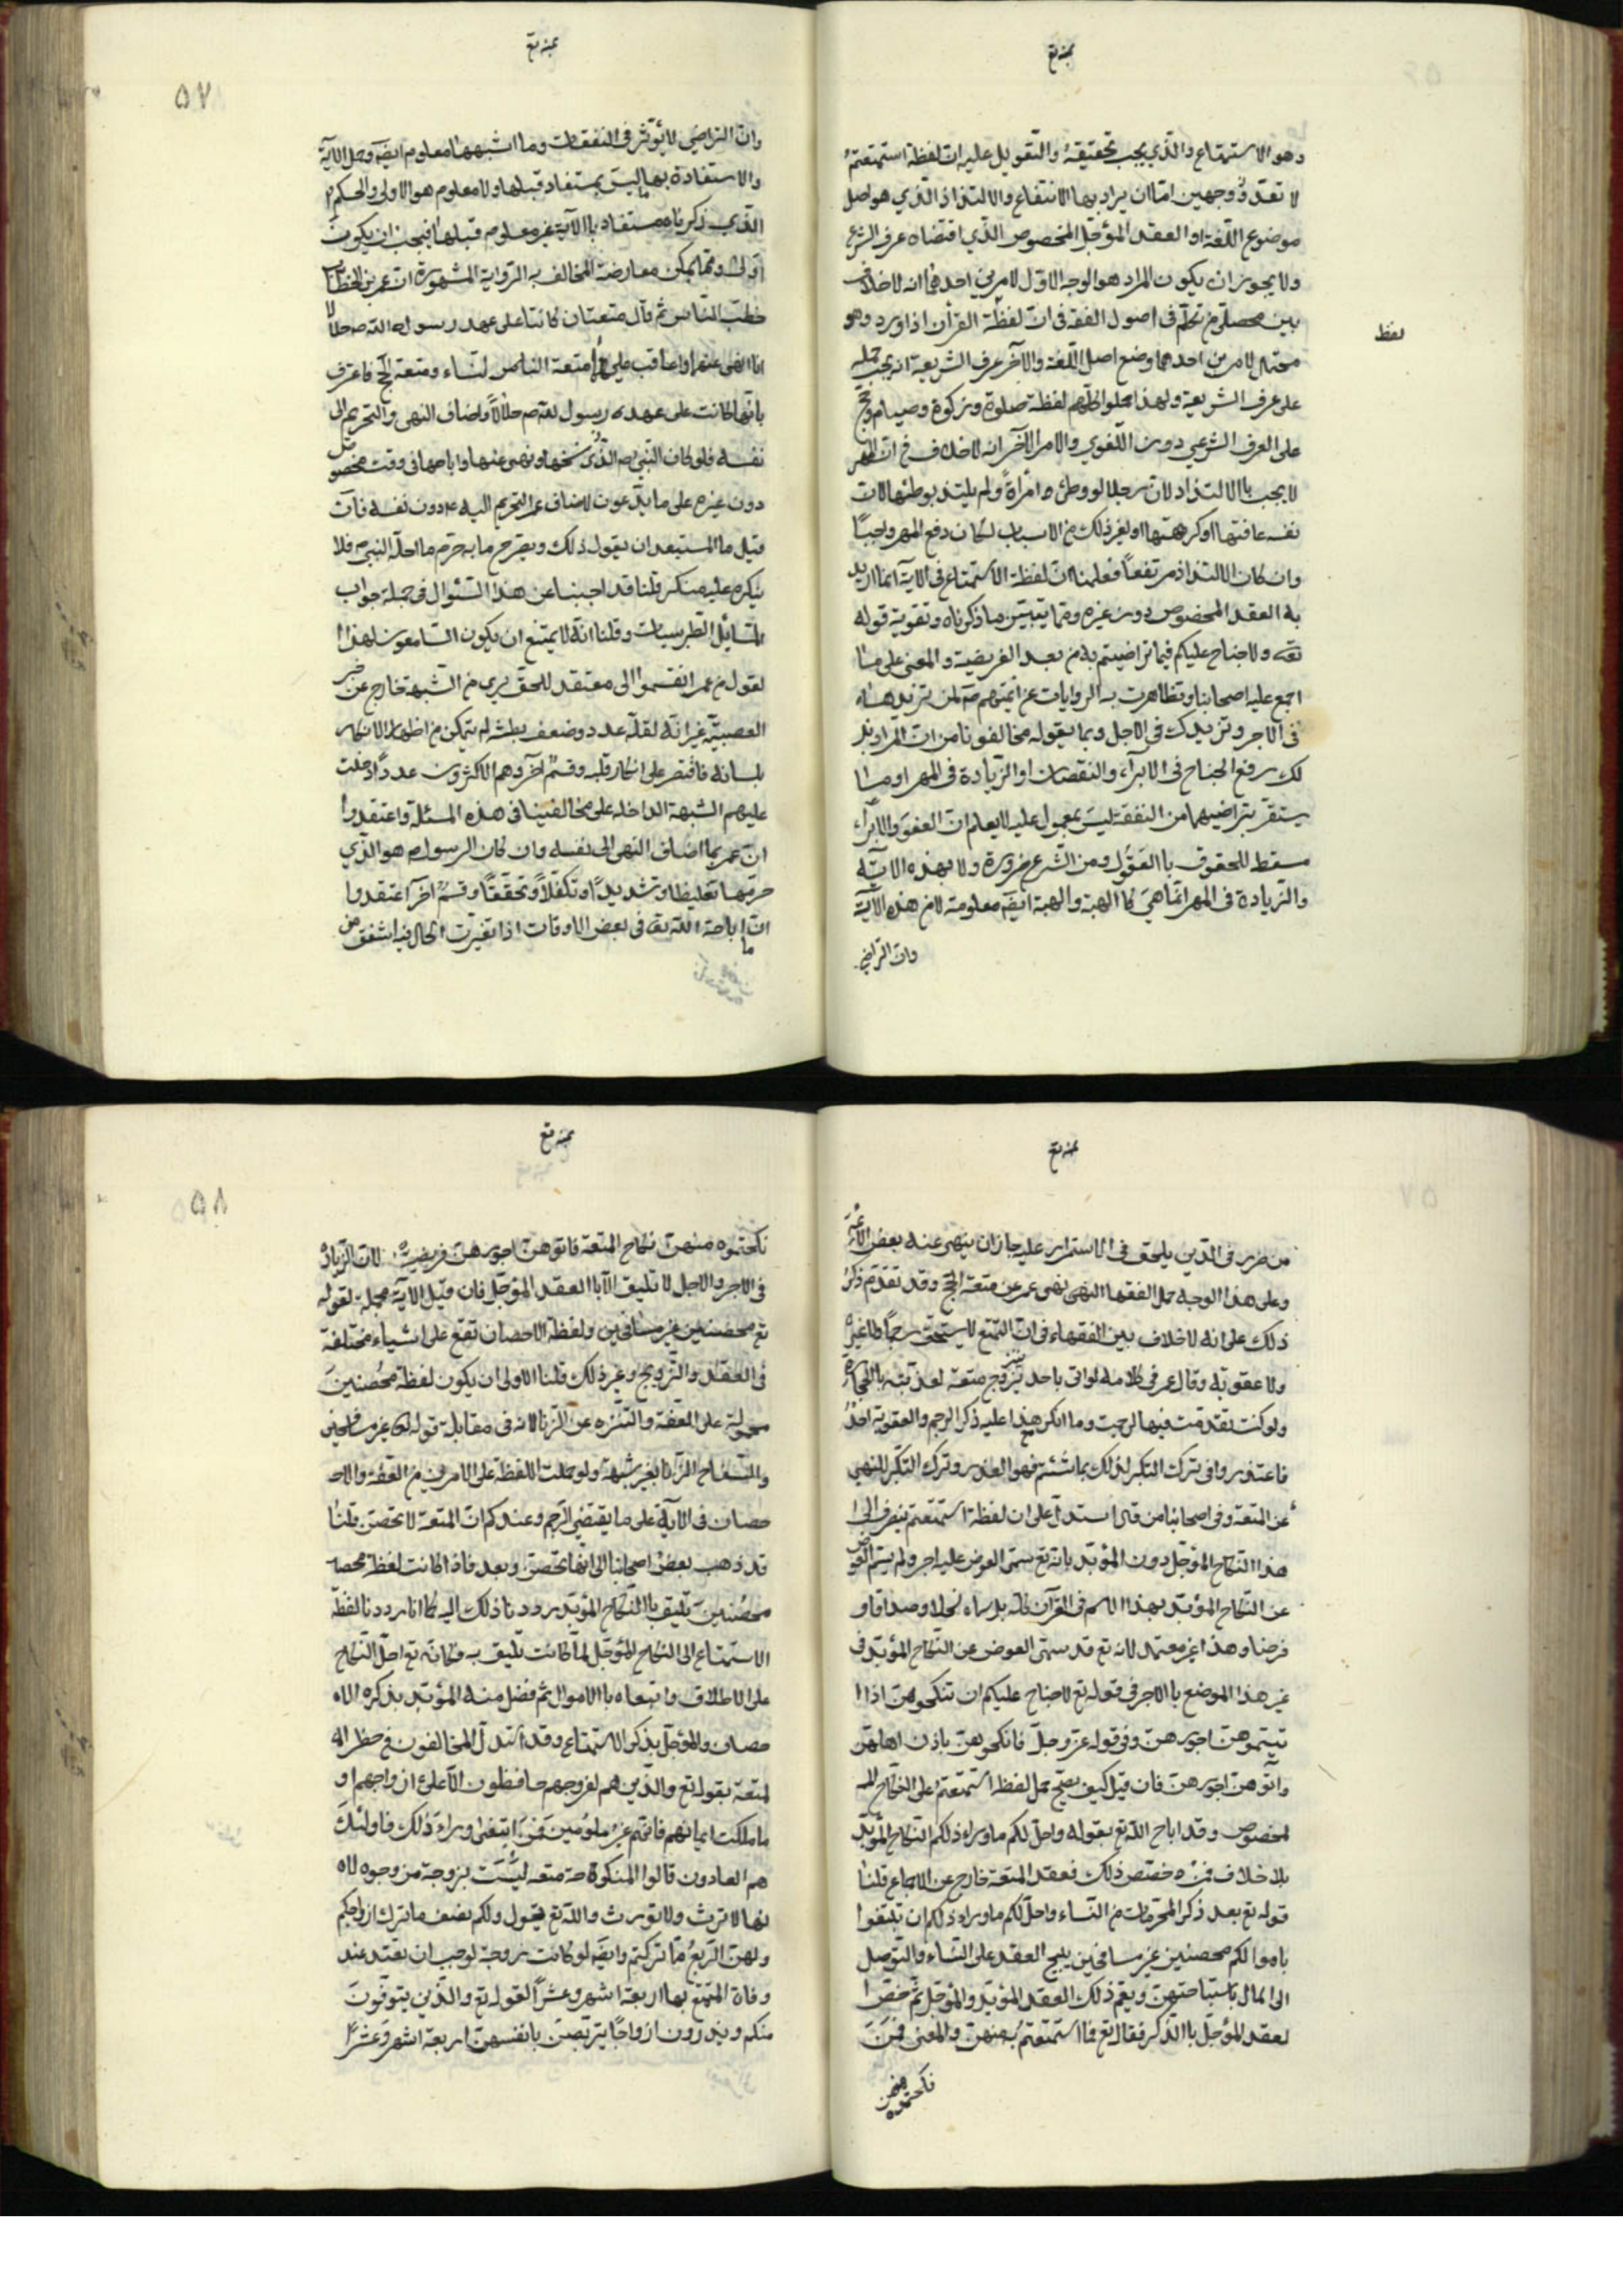 بمنه تع
وهو الاستمتاع والذي يجب تحقيقه والتعويل عليه ان لفظة استمتعتم
لا تعدو وجهين اما ان يراد بها الانتفاع والالتذاذ الذي هو اصل
موضوع اللغة او العقد المؤجل المخصوص الذي اقتضاه عرف الشرع
ولا يجوز ان يكون المراد هو الوجه الاول لامرين احدهما انه لا خلاف
بين محصلي من تكلم في اصول الفقه في ان لفظة القرآن اذا ورد وهو
لفظ
محتمل لامرين احدهما وضع اصل اللغة والآخر عرف الشريعة انه يجب حمله
على عرف الشريعة ولهذا حملوا كلهم لفظة صلوة وزكوة وصيام وحج
على العرف الشرعي دون اللغوي والامر الآخر انه لا خلاف في ان المهر
لا يجب باالالتذاذ لان رجلا لو وطئ امرأة ولم يلتذ بوطئها لان
نفسه عافتها او كرهتها او لغير ذلك من الاسباب لكان دفع المهر واجبا
وان كان الالتذاذ مرتفعا فعلمنا ان لفظة الاستمتاع في الآية انما اريد
به العقد المخصوص دون غيره ومما يبين ما ذكرناه وتقوية قوله
تعه ولا جناح عليكم فيما تراضيتم به من بعد الفريضة والمعنى على ما
اجمع عليه اصحابنا وتظاهرت به الروايات عن ائمتهم ان تزيدها
في الاجر وتزيدك في الاجل وبما يقوله مخالفونا من ان المراد بذ
لك رفع الجناح في الابراء والنقصان او الزيادة في المهر او ما
يستقر بتراضيهما من النفقة ليس بمعمول عليه لا يعلم ان العفو والابراء
مسقط للحقوق باالعقول ومن الشرع ضرورة ولا بهذه الآية
والزيادة في المهر انما هي كاالهبة والهبة ايضه معلومة لا من هذه الآية
وان التراضي
بمنه تع
٥٧
وان التراضي لا يؤثر في النفقات وما اشبهها معلوم ايضه وحمل الآية
والاستفادة بها ما ليس بمستفاد قبلها ولا معلوم هو الاولى والحكم
الذي ذكرناه مستفاد باالآية غير معلوم قبلها فيجب ان يكون
اولى ومما يمكن معارضة المخالف به الرواية المشهورة ان عمر بن الخطاب
خطب الناس ثم قال متعتان كانتا على عهد رسول الله ص حلالا
انا انهى عنهما واعاقب عليهما متعة النساء ومتعة الحج فاعترف
بانها كانت على عهد رسول الله ص حلالا واضاف النهى والتحريم الى
نفسه فلو كان النبي ص الذي نسخها ونهى عنها واباحها في وقت مخصوص
دون غيره على ما يدعون لاضاف عمر التحريم اليه ع دون نفسه فان
قيل ما المستبعد ان يقول ذلك ويصرح ما به حرم ما احله النبي ص فلا
ينكره عليه منكر قلنا قد اجبنا عن هذا السئوال في جملة جواب
المسائل الطرابلسيات وقلنا انه لا يمتنع ان يكون السامعون لهذا ا
لقول من عمر انقسموا الى معتقد للحق برى من الشبهة خارج عن خير
العصبية غير انه لقلة عدد وضعف بطشه لم يتمكن من اظهار الانكار
بلسانه فاقتصر على انكار قلبه وقسم آخر وهم الاكثرون عددا دخلت
عليهم الشبهة الداخلة على مخالفينا في هذه المسئلة واعتقدوا
ان عمر بما اضاف النهى الى نفسه وان كان الرسول ص هو الذي
حرمها تغليظا وتشديدا وتكفلا وتحققا وقسم آخر اعتقدوا
ان ما اباحه الله تعه في بعض الاوقات اذا تغيرت الحال فيه اشفق من
بمنه تع
من ضرر في الدين يلحق في الاستمرار عليه جاز ان ينهى عنه بعض الائمة
وعلى هذا الوجه حمل الفقها النهى نهى عمر عن متعة الحج وقد تقدم ذكر
ذلك على انه لا خلاف بين الفقهاء في ان التمتع لا يستحق رجما ولا غيره
ولا عقوبة وقال عمر في كلامه لو اتى باحد تزوج متعة لعذبته باالحجارة
ولو كنت تقدمت فيها لرجمت وما انكر هذا عليه ذكر الرجم والعقوبة احد
فاعتذروا في ترك النكير لذلك بما شئتم فهو العذر وترك النكير للنهي
عن المتعة وفي اصحابنا من قال استدل على ان لفظة استمتعتم ينصرف الى
هذا النكاح المؤجل دون المؤبد بانه تع سمى العوض عليه اجر ولم يسم العوض
عن النكاح المؤبد بهذا الاسم في القرآن كله بل سماه نحلا وصداقا و
فرضا وهذا غير معتمد لانه تع قد سمى العوض عن النكاح المؤبد في
غير هذا الموضع باالاجر في قوله تع لا جناح عليكم ان تنكحوهن اذا ا
تيتموهن اجورهن وفي قوله عز وجل فانكحوهن باذن اهلهن
وآتوهن اجورهن فان قيل كيف يصح حمل لفظ استمتعتم على النكاح المـ
لخصوص وقد اباح الله تع بقوله واحل لكم ما وراء ذلكم النكاح المؤبد
بلا خلاف فمن خصص ذلك فعقد المتعة خارج عن الاجماع قلنا
قوله تع بعد ذكر المحرمات من النساء واحل لكم ما وراء ذلكم ان تبتغوا
باموالكم محصنين غير مسافحين يبيح العقد على النساء والتوصل
الى المال باستباحتهن ويعم ذلك العقد المؤبد والمؤجل ثم خص ا
لعقد المؤجل باالذكر فقال تع فما استمتعتم به منهن والمعنى فمن
نكحتموه منهن
بمنه تع
٥٨
نكحتموه منهن نكاح المتعة فاتوهن اجورهن فريضة لان الزيادة
في الاجر والاجل لا تليق الا باالعقد المؤجل فان قيل الآية مجملة لقوله
تع محصنين غير مسافحين ولفظة الاحصان تقع على اشياء مختلفة
في العقد والتزويج وغير ذلك قلنا الاولى ان يكون لفظة محصنين
محمولة على العفة والتنزه عن الزنا لانه في مقابلة قوله تع غير مسافحين
والسفاح الزنا بغير شبهة ولو حملت اللفظة على الامرين من العفة والاحـ
حصان في الآية على ما يقتضي الرجم وعندكم ان المتعة لا تحصن قلنا
قد ذهب بعض اصحابنا الى انها تحصن وبعد فاذا كانت لفظة محصـ
محصنين تليق باالنكاح المؤبد رددنا ذلك اليه كما انا رددنا لفظة
الاستمتاع الى النكاح المؤجل لما كانت تليق به وكانه تع احل النكاح
على الاطلاق وابتغاه باالاموال ثم فصل منه المؤبد بذكره الا
حصان والمؤجل بذكر الاستمتاع وقد استدل المخالفون في حظر الـ
لمتعة بقوله تع والذين هم لفروجهم حافظون الا على ازواجهم او
ما ملكت ايمانهم فانهم غير ملومين فمن ابتغى وراء ذلك فاولئك
هم العادون قالوا المنكوحة متعه ليست بزوجة من وجوه لا
نها لا ترث ولا تورث والله تع يقول ولكم نصف ما ترك ازواجكم
ولهن الربع مما تركتم وايضه لو كانت زوجة لوجب ان تعتد عند
وفاة المتمتع بها اربعة اشهر وعشرا لقوله تع والذين يتوفون
منكم ويذرون ازواجا يتربصن بانفسهن اربعة اشهر وعشرا